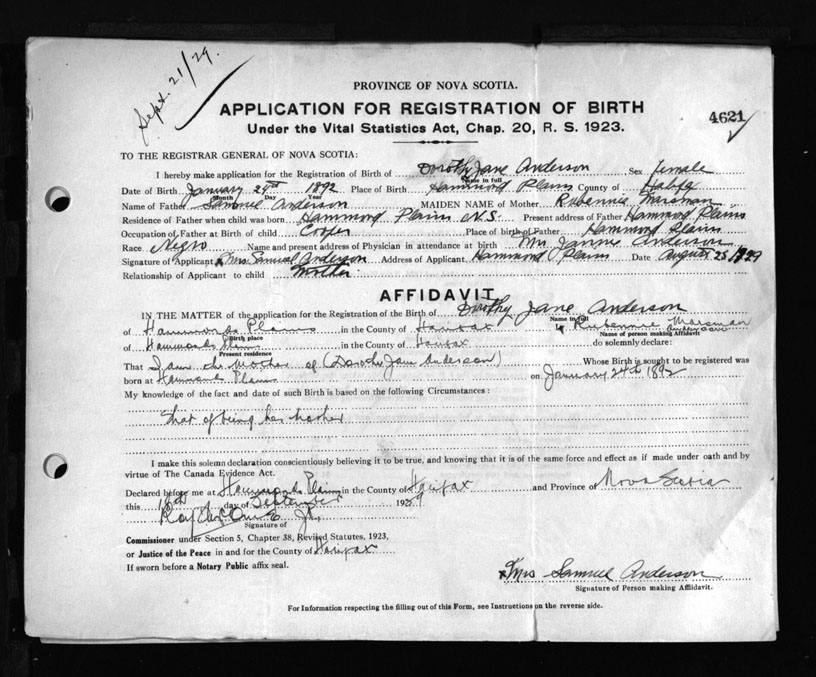 Sept. 21/29
PROVINCE OF NOVA SCOTIA.
APPLICATION FOR REGISTRATION OF BIRTH
4621
Under the Vital Statistics Act, Chap. 20, R. S. 1923.
TO THE REGISTRAR GENERAL OF NOVA SCOTIA:
I hereby make application for the Registration of Birth of Dorothy Jane Anderson Sex Female
Name in full
Date of Birth January 24th 1892 Place of Birth Hammond Plains County of Halifax
Month Day Year
Name of Father Samuel Anderson MAIDEN NAME of Mother Rubennie Marsman
Residence of Father when child was born Hammond Plains N.S. Present address of Father Hammond Plains
Occupation of Father at Birth of child Cooper Place of birth of Father Hammond Plains
Race Negro Name and present address of Physician in attendance at birth Mrs. Jannie Anderson
Signature of Applicant x Mrs Samuel Anderson Address of Applicant Hammond Plains Date August 25 1929
Relationship of Applicant to child Mother
AFFIDAVIT
IN THE MATTER of the application for the Registration of the Birth of Dorothy Jane Anderson
Name in full
of Hammonds Plains in the County of Halifax I, Rubennie Marsman Anderson
Birth place Name of person making Affidavit
of Hammonds Plains in the County of Halifax do solemnly declare:
Present residence
That I am the Mother of (Dorothy Jane Anderson) Whose Birth is sought to be registered was
born at Hammonds Plains on January 24th 1892
My knowledge of the fact and date of such Birth is based on the following Circumstances:
that of being her Mother
I make this solemn declaration conscientiously believing it to be true, and knowing that it is of the same force and effect as if made under oath and by
virtue of The Canada Evidence Act.
Declared before me at Hammonds Plains in the County of Halifax and Province of Nova Scotia
this day of September 1929
Signature of
Commissioner under Section 5, Chapter 38, Revised Statutes, 1923,
or Justice of the Peace in and for the County of Halifax
If sworn before a Notary Public affix seal.
x Mrs Samuel Anderson
Signature of Person making Affidavit.
For Information respecting the filling out of this Form, see Instructions on the reverse side.